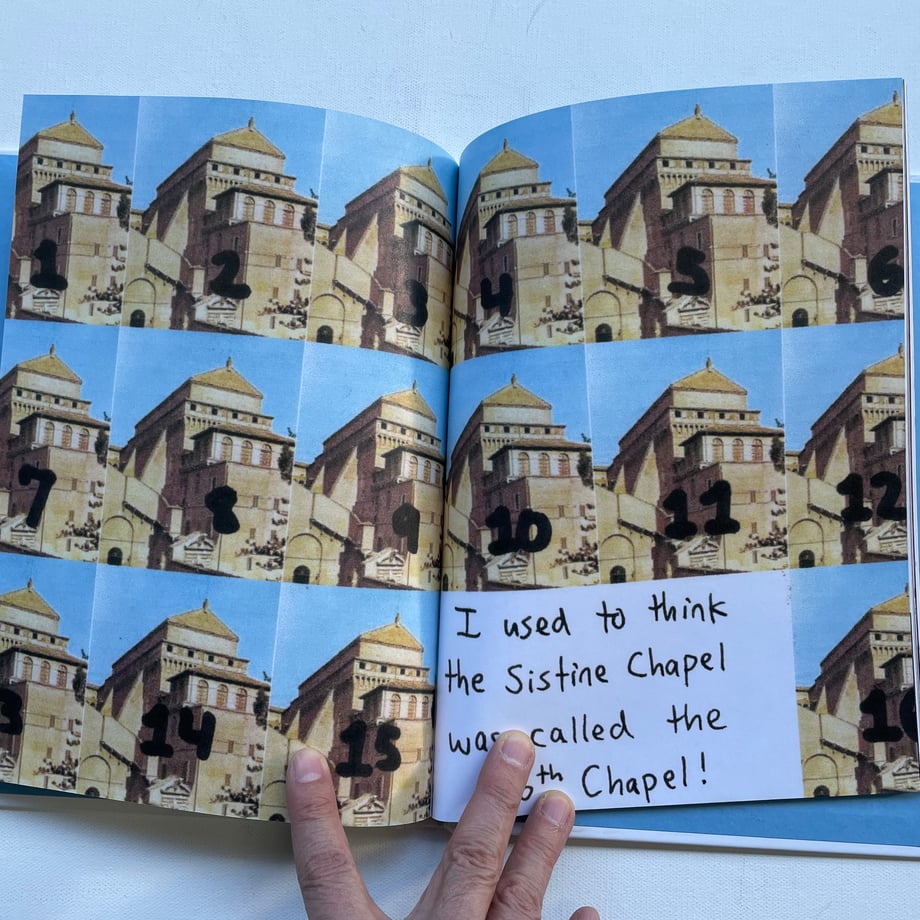 1 2 3 4 5 6
7 8 9 10 11 12
14 15
I used to think
the Sistine Chapel
was called the
16th Chapel!